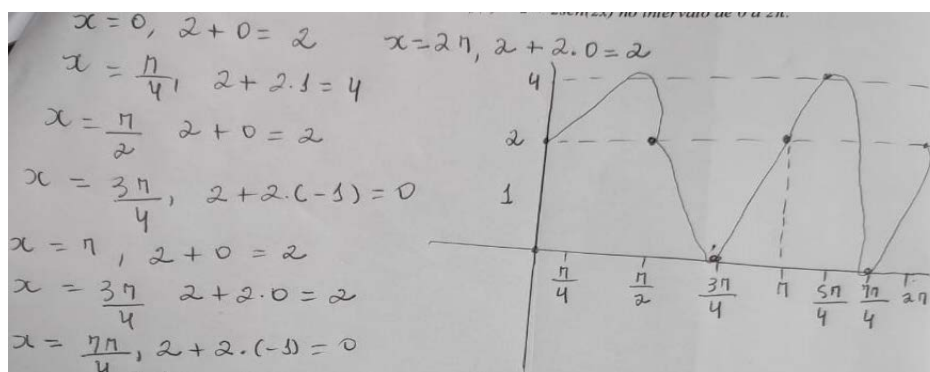 2sen(2x) no intervalo de 0 a 2π.
x = 0, 2 + 0 = 2
x = π/4, 2 + 2.1 = 4
x = π/2 2 + 0 = 2
x = 3π/4, 2 + 2.(-1) = 0
x = π, 2 + 0 = 2
x = 3π/4 2 + 2.0 = 2
x = 7π/4, 2 + 2.(-1) = 0
x = 2π, 2 + 2.0 = 2
4
2
1
π/4 π/2 3π/4 π 5π/4 7π/4 2π